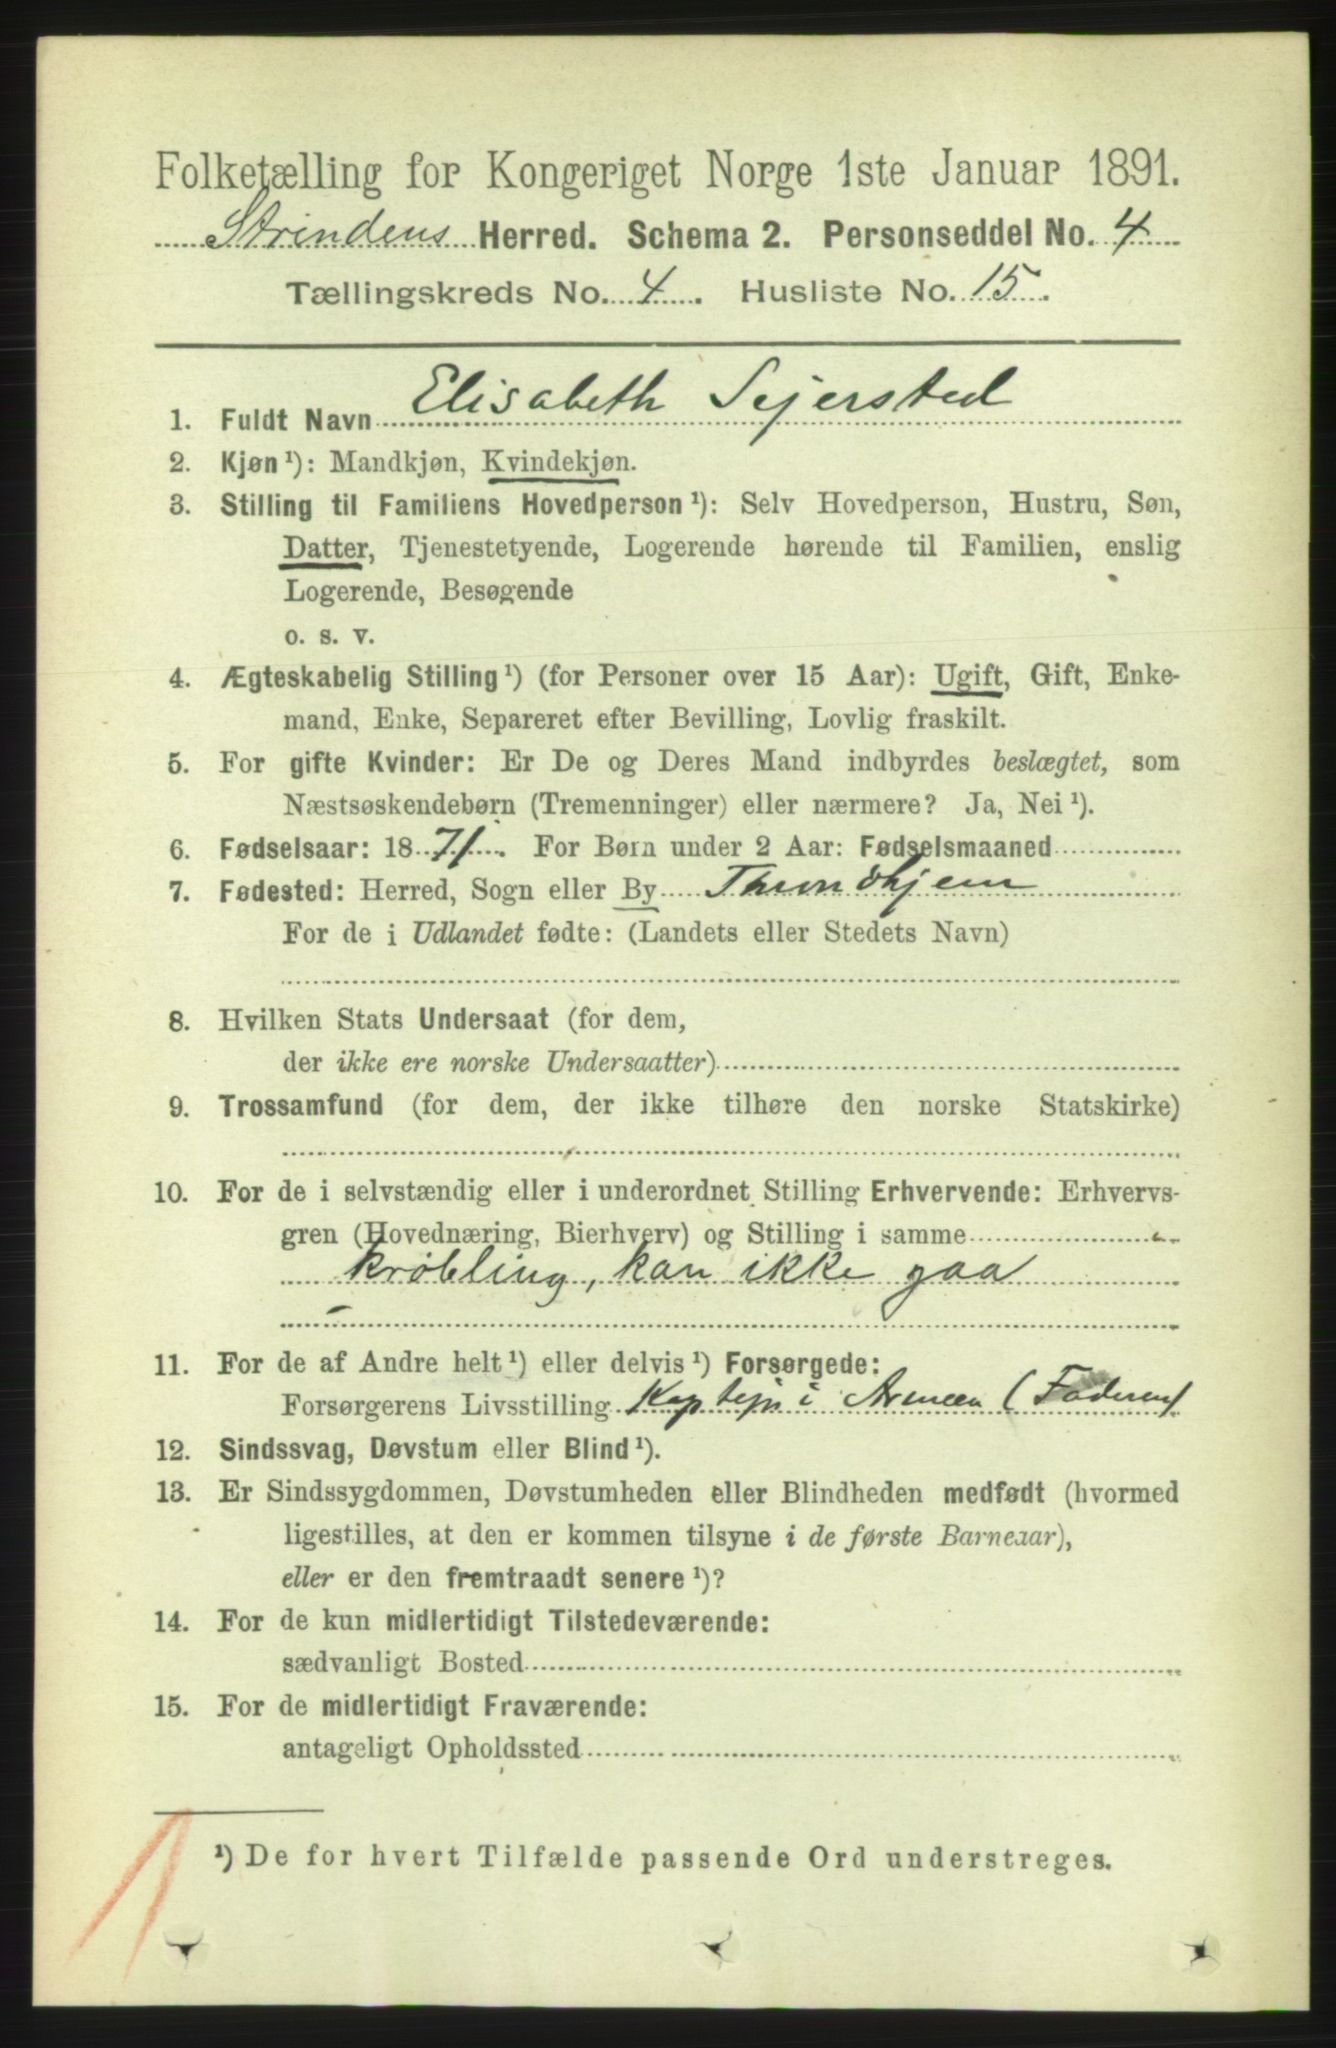 Folketælling for Kongeriget Norge 1ste Januar 1891.
Strindens Herred. Schema 2. Personseddel No. 4
Tællingskreds No. 4. Husliste No. 15.
1. Fuldt Navn Elisabeth Sejersted
2. Kjøn ¹): Mandkjøn, Kvindekjøn.
3. Stilling til Familiens Hovedperson ¹): Selv Hovedperson, Hustru, Søn,
Datter, Tjenestetyende, Logerende hørende til Familien, enslig
Logerende, Besøgende
o. s. v.
4. Ægteskabelig Stilling ¹) (for Personer over 15 Aar): Ugift, Gift, Enke-
mand, Enke, Separeret efter Bevilling, Lovlig fraskilt.
5. For gifte Kvinder: Er De og Deres Mand indbyrdes beslægtet, som
Næstsøskendebørn (Tremenninger) eller nærmere? Ja, Nei ¹).
6. Fødselsaar: 1871. For Børn under 2 Aar: Fødselsmaaned
7. Fødested: Herred, Sogn eller By Throndhjem
For de i Udlandet fødte: (Landets eller Stedets Navn)
8. Hvilken Stats Undersaat (for dem,
der ikke ere norske Undersaatter)
9. Trossamfund (for dem, der ikke tilhøre den norske Statskirke)
10. For de i selvstændig eller i underordnet Stilling Erhvervende: Erhvervs-
gren (Hovednæring, Bierhverv) og Stilling i samme
krøbling, kan ikke gaa
11. For de af Andre helt ¹) eller delvis ¹) Forsørgede:
Forsørgerens Livsstilling Kaptejn i Armeen (Faderen)
12. Sindssvag, Døvstum eller Blind ¹).
13. Er Sindssygdommen, Døvstumheden eller Blindheden medfødt (hvormed
ligestilles, at den er kommen tilsyne i de første Barneaar),
eller er den fremtraadt senere ¹)?
14. For de kun midlertidigt Tilstedeværende:
sædvanligt Bosted
15. For de midlertidigt Fraværende:
antageligt Opholdssted
¹) De for hvert Tilfælde passende Ord understreges.